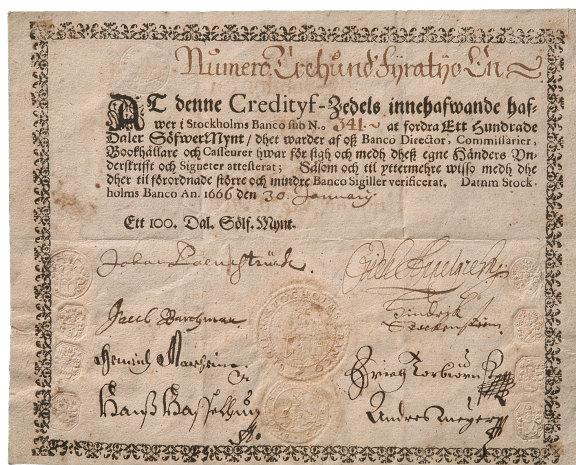 Numero Trehund Fyratijo En
AT denne Credityf-Zedels innehafwande haf-
wer i Stockholms Banco sub N.o 341. at fordra Ett Hundrade
Daler SölfwerMynt/ dhet warder af oß Banco Director, Commissarier,
Bookhållare och Casseurer hwar för sigh och medh dheß egne Händers Vn-
derskrifft och Signeter attesterat; Såsom och til yttermehre wisso medh dhe
dher til förordnade större och mindre Banco Sigiller verificerat. Datum Stock-
holms Banco An. 1666 den 30. January.
Ett 100. Dal. Sölf. Mynt.
Johan
Jacob
Hindrich
Heinrich
Hanß
Erich Torbiörn
Andres Meyer